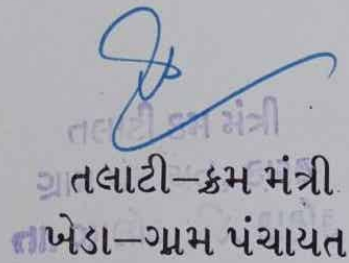 તલાટી ક્રમ મંત્રી
તલાટી–ક્રમ મંત્રી
ખેડા–ગ્રામ પંચાયત